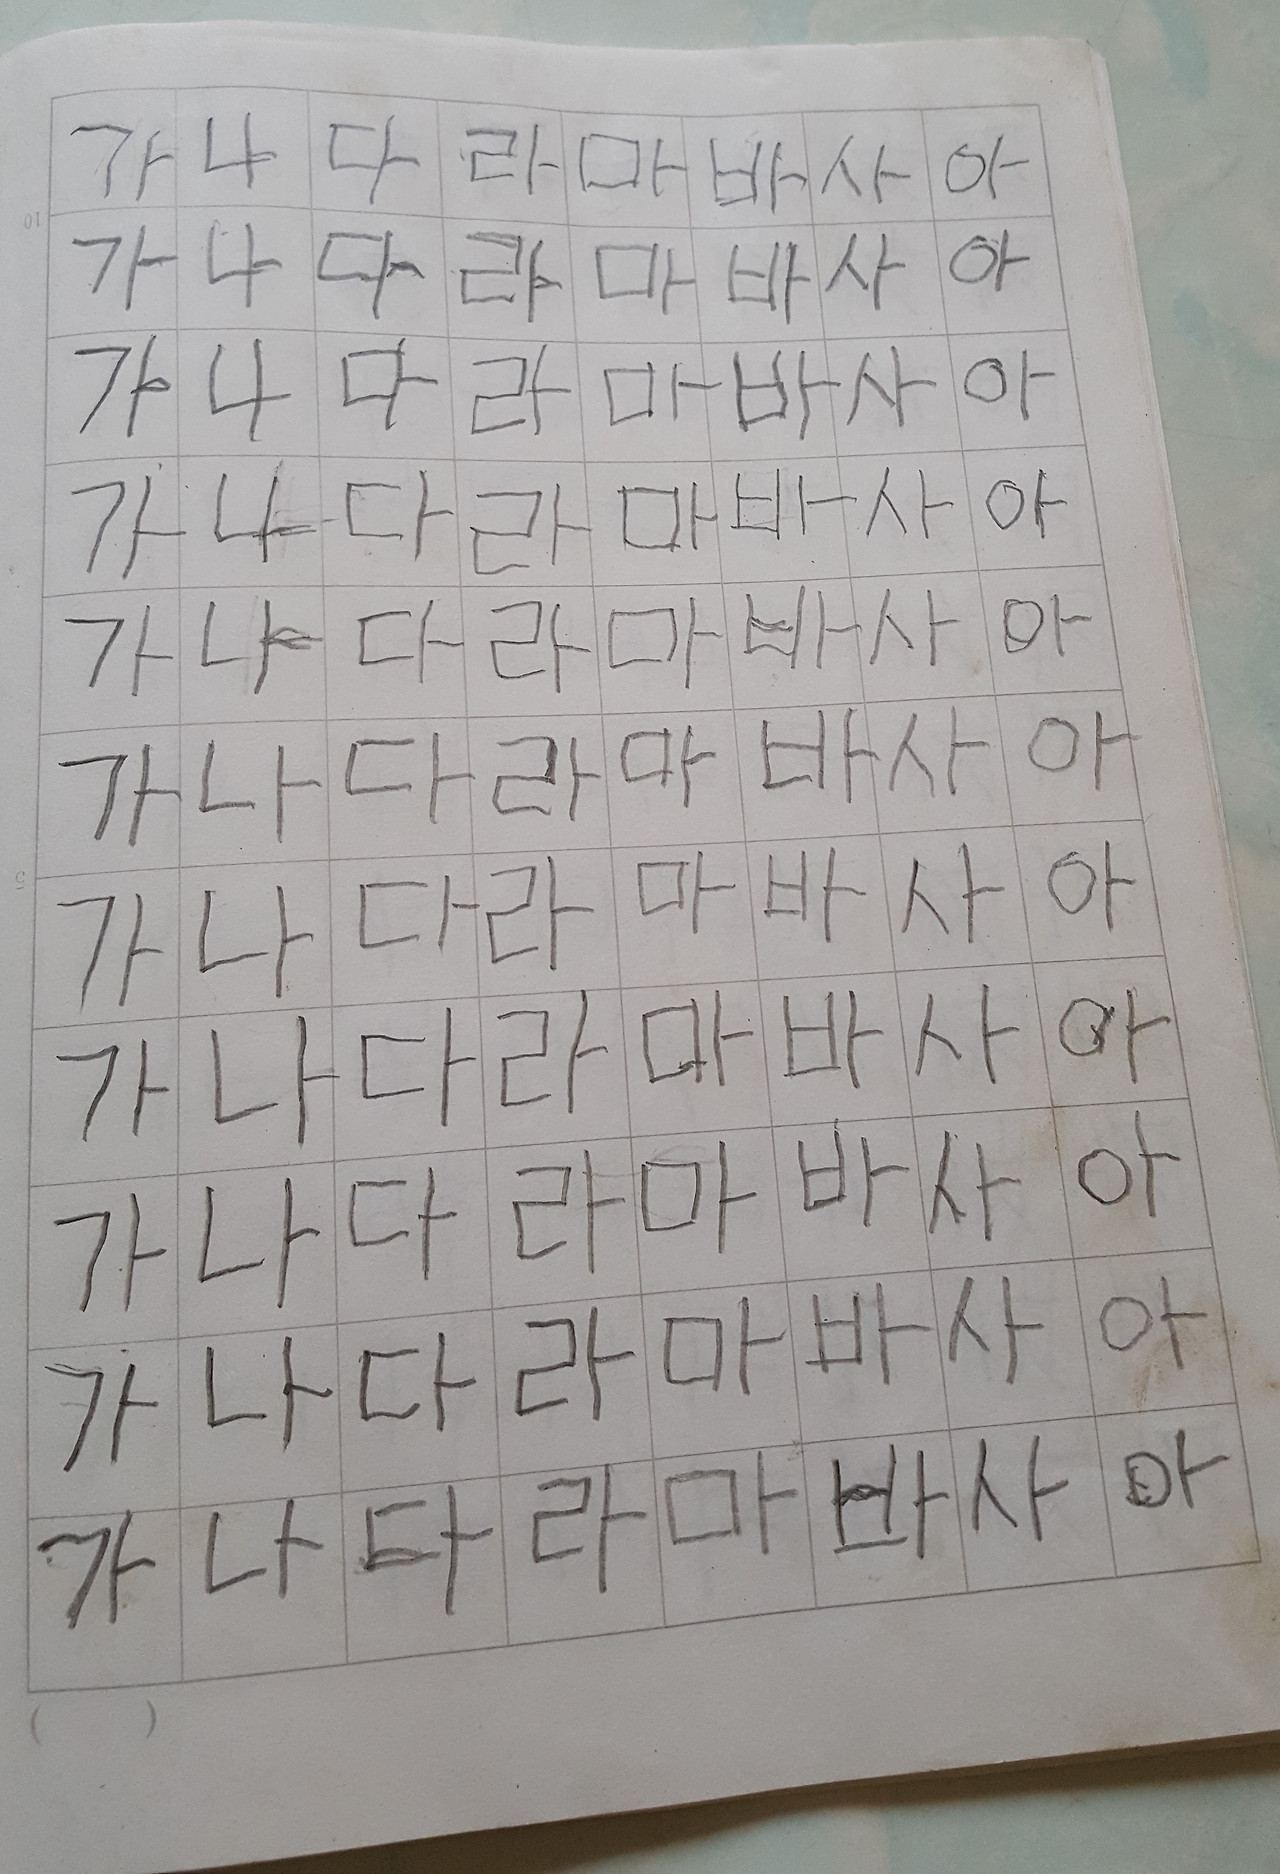 가 나 다 라 마 바 사 아
가 나 다 라 마 바 사 아
가 나 다 라 마 바 사 아
가 나 다 라 마 바 사 아
가 나 다 라 마 바 사 아
가 나 다 라 마 바 사 아
가 나 다 라 마 바 사 아
가 나 다 라 마 바 사 아
가 나 다 라 마 바 사 아
가 나 다 라 마 바 사 아
가 나 다 라 마 바 사 아
( )